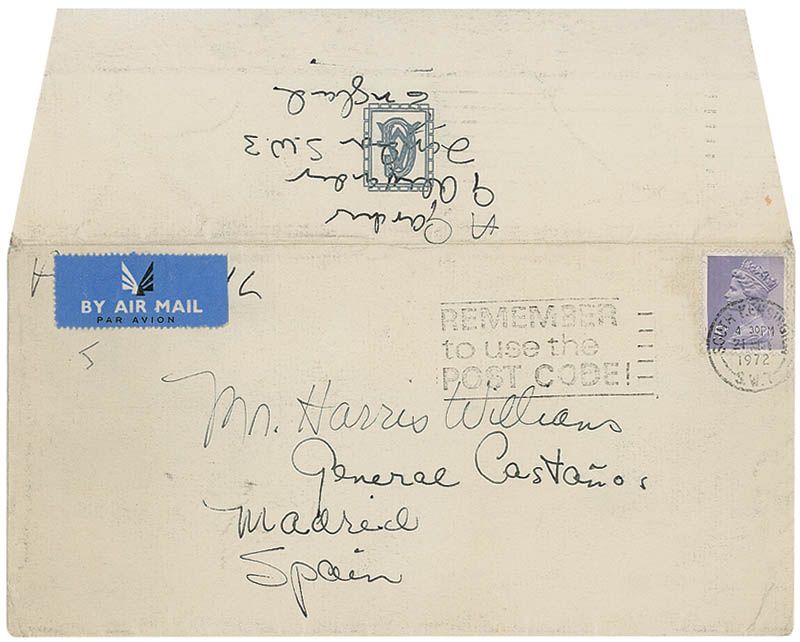 A Gardner
9 Alexander
London S.W.3
England
BY AIR MAIL
PAR AVION
REMEMBER
to use the
POST CODE!
SOUTH KENSINGTON
4 30PM
21
1972
S.W.7
Mr. Harris Williams
General Castaños
Madrid
Spain